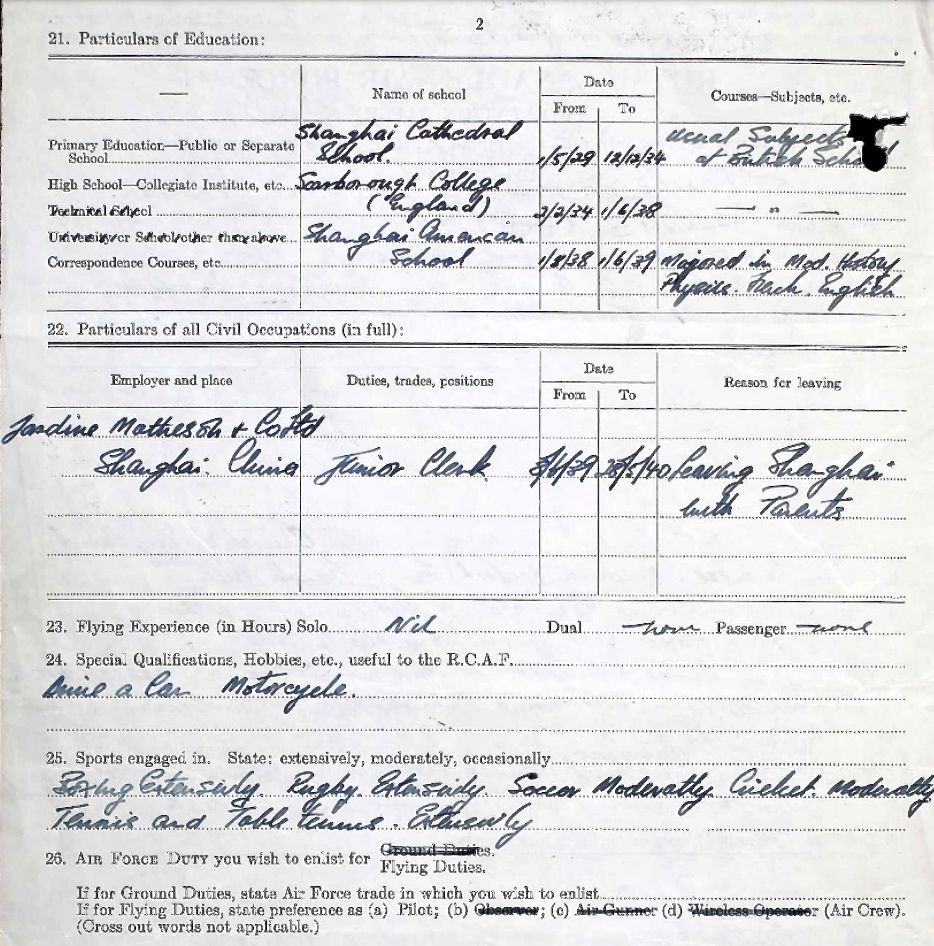 2
21. Particulars of Education:
Name of school
Date
From To
Courses—Subjects, etc.
Primary Education—Public or Separate School
Shanghai Cathedral
School.
1/5/29 12/12/34
usual Subjects
at British School
High School—Collegiate Institute, etc. Scarborough College
Technical School (England) 2/2/34 1/6/38 — " —
University or School other than above Shanghai American
Correspondence Courses, etc. School 1/8/38 1/6/39 Majored in Mod. History
Physics. French. English
22. Particulars of all Civil Occupations (in full):
Employer and place
Duties, trades, positions
Date
From To
Reason for leaving
Jardine Matheson & Co Ltd
Shanghai. China Junior Clerk /39 /5/40 leaving Shanghai
with Parents
23. Flying Experience (in Hours) Solo Nil Dual none Passenger none
24. Special Qualifications, Hobbies, etc., useful to the R.C.A.F.
Drive a Car Motorcycle.
25. Sports engaged in. State: extensively, moderately, occasionally
Boxing Extensively. Rugby. Extensively. Soccer Moderatly Cricket. Moderatly
Tennis and Table tennis. Extensively
26. AIR FORCE DUTY you wish to enlist for Ground Duties.
Flying Duties.
If for Ground Duties, state Air Force trade in which you wish to enlist
If for Flying Duties, state preference as (a) Pilot; (b) Observer; (c) Air Gunner (d) Wireless Operator (Air Crew).
(Cross out words not applicable.)